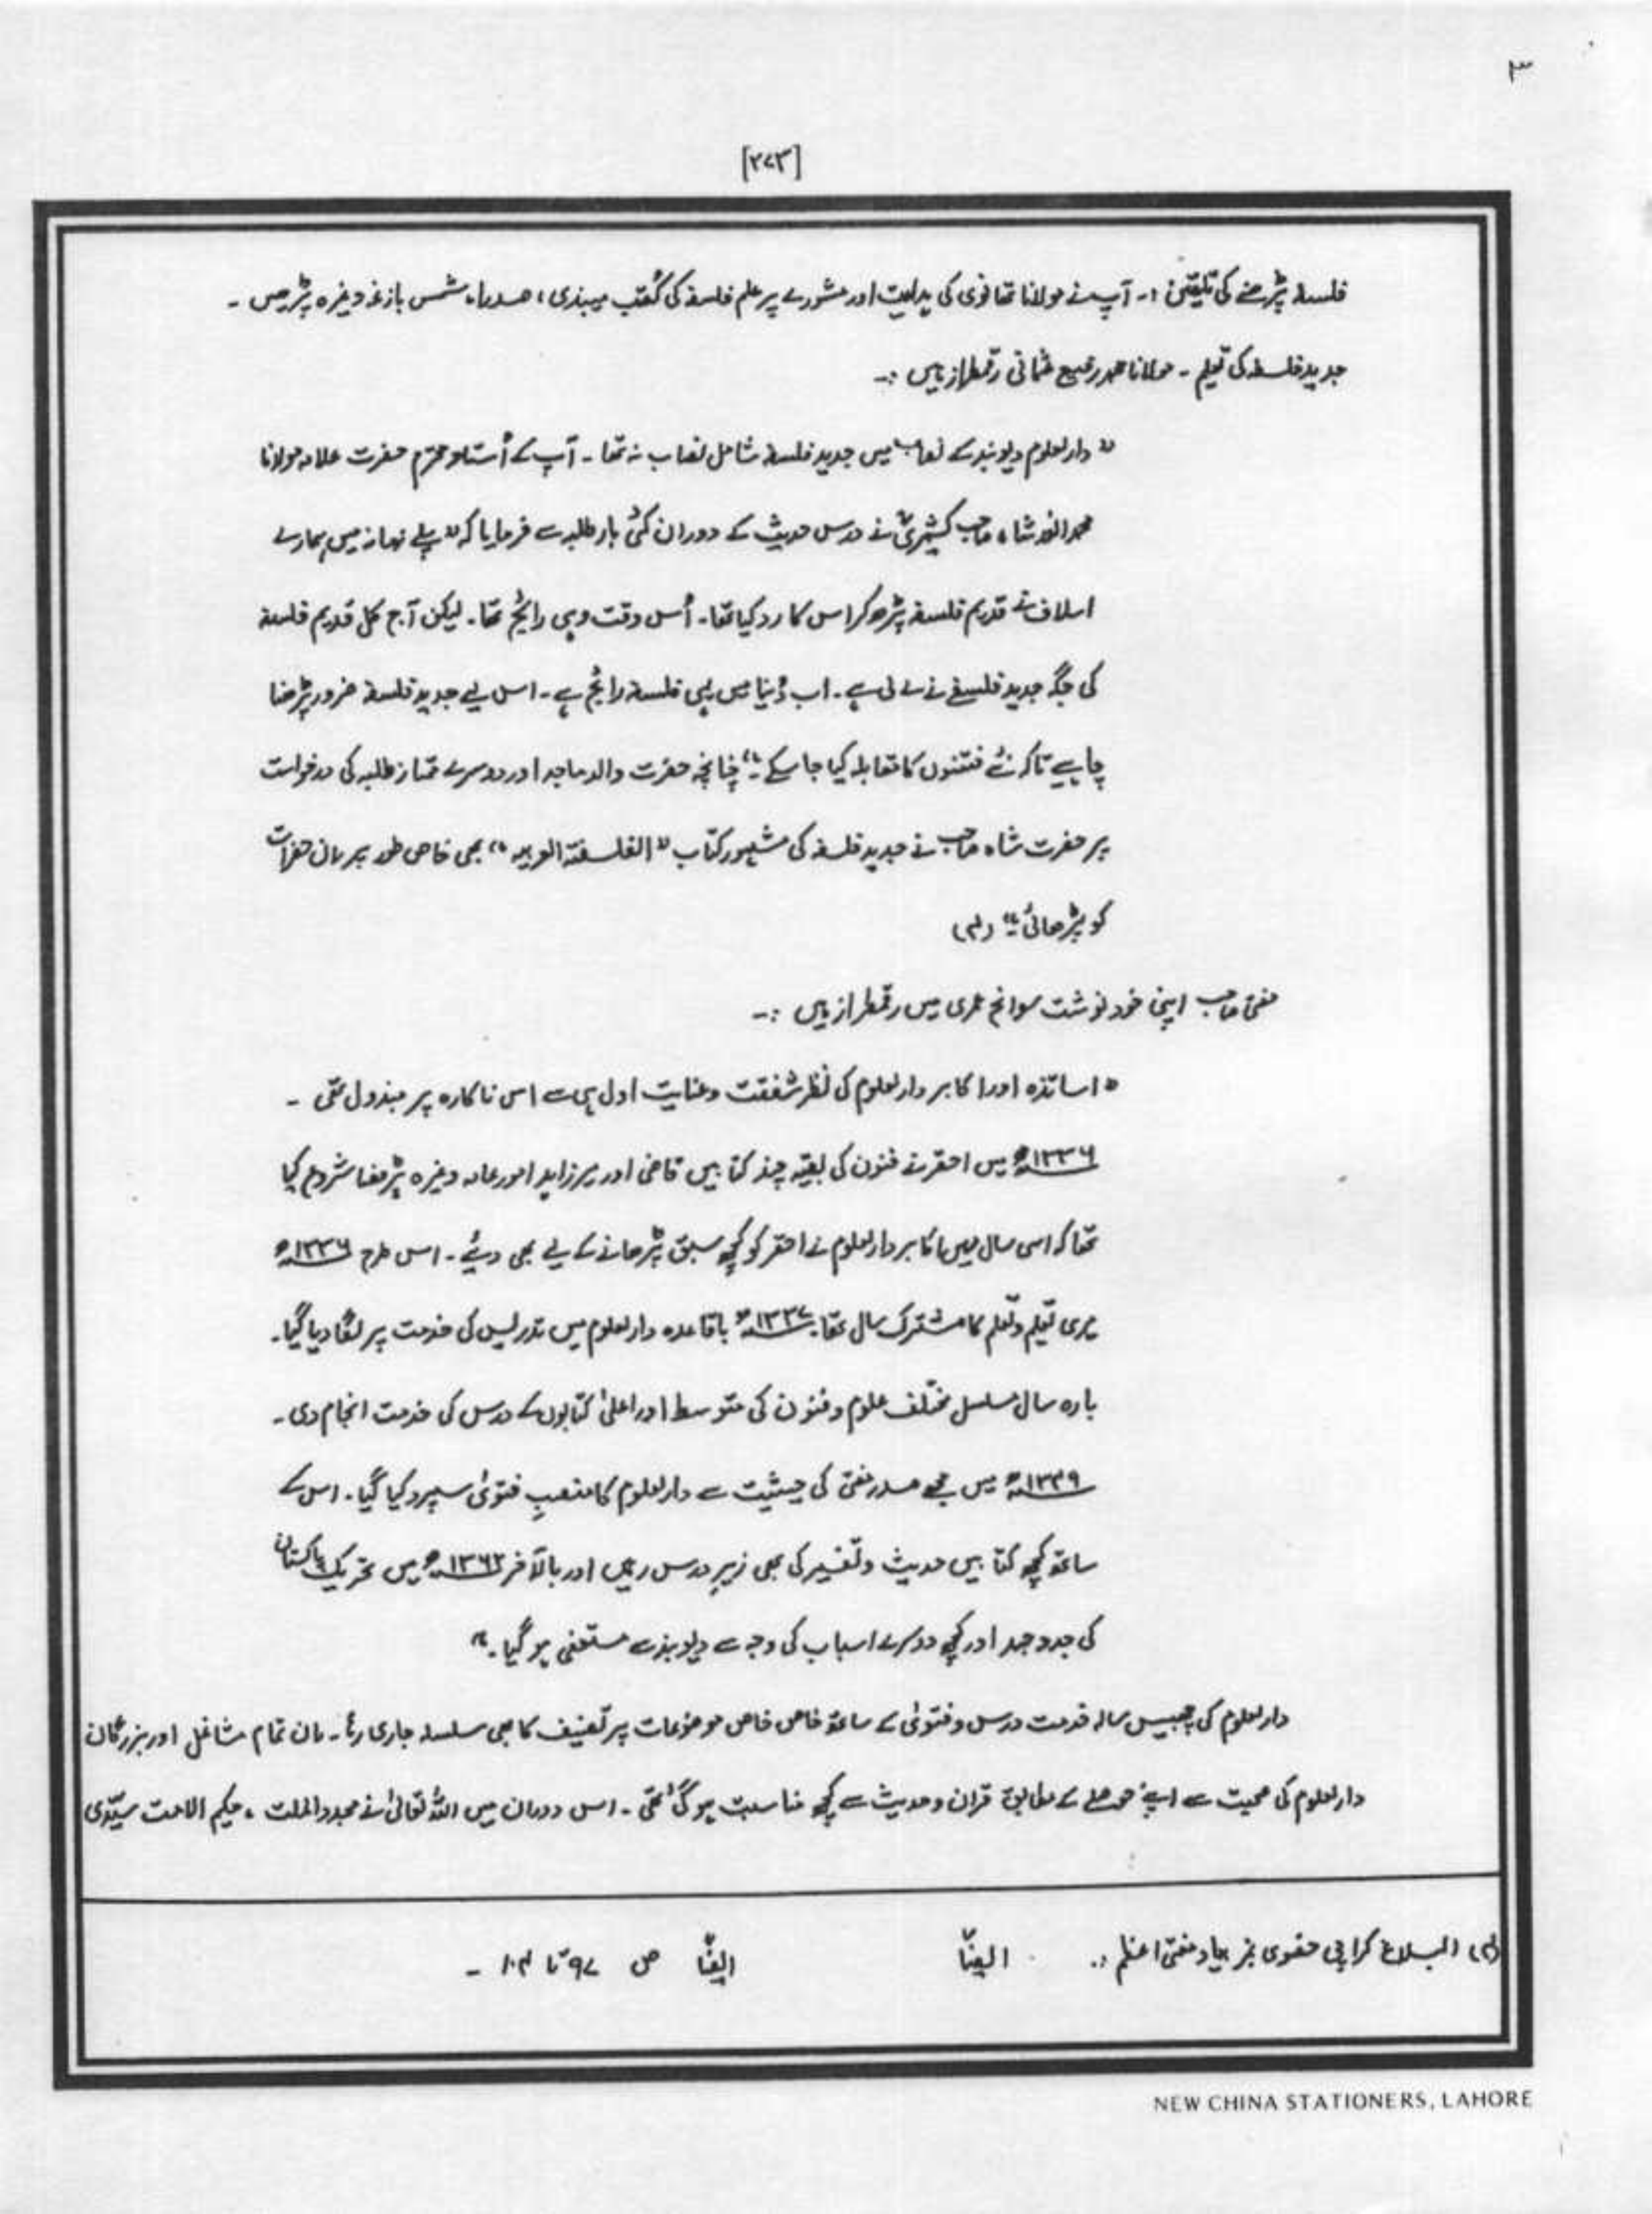 ۳
[۲۷۳]
فلسفہ پڑھنے کی تلقین :۔ آپ نے مولانا تھانوی کی ہدایت اور مشورے پر علم فلسفہ کی کُتب میبذی، صدرا، شمس بازغہ وغیرہ پڑھیں ۔
جدید فلسفہ کی تعلیم ۔ مولانا محمد رفیع عثمانی رقمطراز ہیں :۔
" دارالعلوم دیوبند کے نصاب میں جدید فلسفہ شامل نصاب نہ تھا ۔ آپ کے اُستاد محترم حضرت علامہ مولانا
محمد انور شاہ صاحب کشمیریؒ نے درس حدیث کے دوران کئی بار طلبہ سے فرمایا کہ " پہلے زمانہ میں ہمارے
اسلاف نے قدیم فلسفہ پڑھ کر اس کا رد کیا تھا ۔ اُس وقت وہی رائج تھا ۔ لیکن آج کل قدیم فلسفہ
کی جگہ جدید فلسفے نے لے لی ہے ۔ اب دُنیا میں یہی فلسفہ رائج ہے ۔ اس لیے جدید فلسفہ ضرور پڑھنا
چاہیے تاکہ نئے فتنوں کا مقابلہ کیا جا سکے ۔" چنانچہ حضرت والد ماجد اور دوسرے ممتاز طلبہ کی درخواست
پر حضرت شاہ صاحب نے جدید فلسفہ کی مشہور کتاب " الفلسفتہ العربیہ " بھی خاص طور پر ان حضرات
کو پڑھائی ۔" (۴)
مفتی صاحب اپنی خود نوشت سوانح عمری میں رقمطراز ہیں :۔
" اساتذہ اور اکابر دارالعلوم کی نظر شفقت و عنایت اول ہی سے اس ناکارہ پر مبذول تھی ۔
۱۳۳۶ھ میں احقر نے فنون کی بقیہ چند کتابیں قاضی اور میرزاہد امور عامہ وغیرہ پڑھنا شروع کیا
تھا کہ اسی سال میں اکابر دارالعلوم نے احقر کو کچھ سبق پڑھانے کے لیے بھی دیئے ۔ اس طرح ۱۳۳۶ھ
میری تعلیم و تعلم کا مشترک سال تھا ۔ ۱۳۳۷ھ باقاعدہ دارالعلوم میں تدریس کی خدمت پر لگا دیا گیا ۔
بارہ سال مسلسل مختلف علوم و فنون کی متوسط اور اعلیٰ کتابوں کے درس کی خدمت انجام دی ۔
۱۳۴۹ھ میں مجھے صدر مفتی کی حیثیت سے دارالعلوم کا منصبِ فتویٰ سپرد کیا گیا ۔ اس کے
ساتھ کچھ کتابیں حدیث و تفسیر کی بھی زیرِ درس رہیں اور بالآخر ۱۳۶۲ھ میں تحریک پاکستان
کی جدوجہد اور کچھ دوسرے اسباب کی وجہ سے دیوبند سے مستعفی ہو گیا ۔"
دارالعلوم کی چھبیس سالہ خدمت درس و فتویٰ کے ساتھ خاص خاص موضوعات پر تصنیف کا بھی سلسلہ جاری رہا ۔ ان تمام مشاغل اور بزرگان
دارالعلوم کی صحبت سے اپنے حوصلے کے مطابق قرآن و حدیث سے کچھ مناسبت ہو گئی تھی ۔ اس دوران میں اللہ تعالیٰ نے مجدد الملت ، حکیم الامت سیّدی
(۴) البلاغ کراچی خصوصی نمبر بیاد مفتی اعظم :۔ ایضًا ایضًا ص ۹۷ تا ۱۰۴ ۔
NEW CHINA STATIONERS, LAHORE